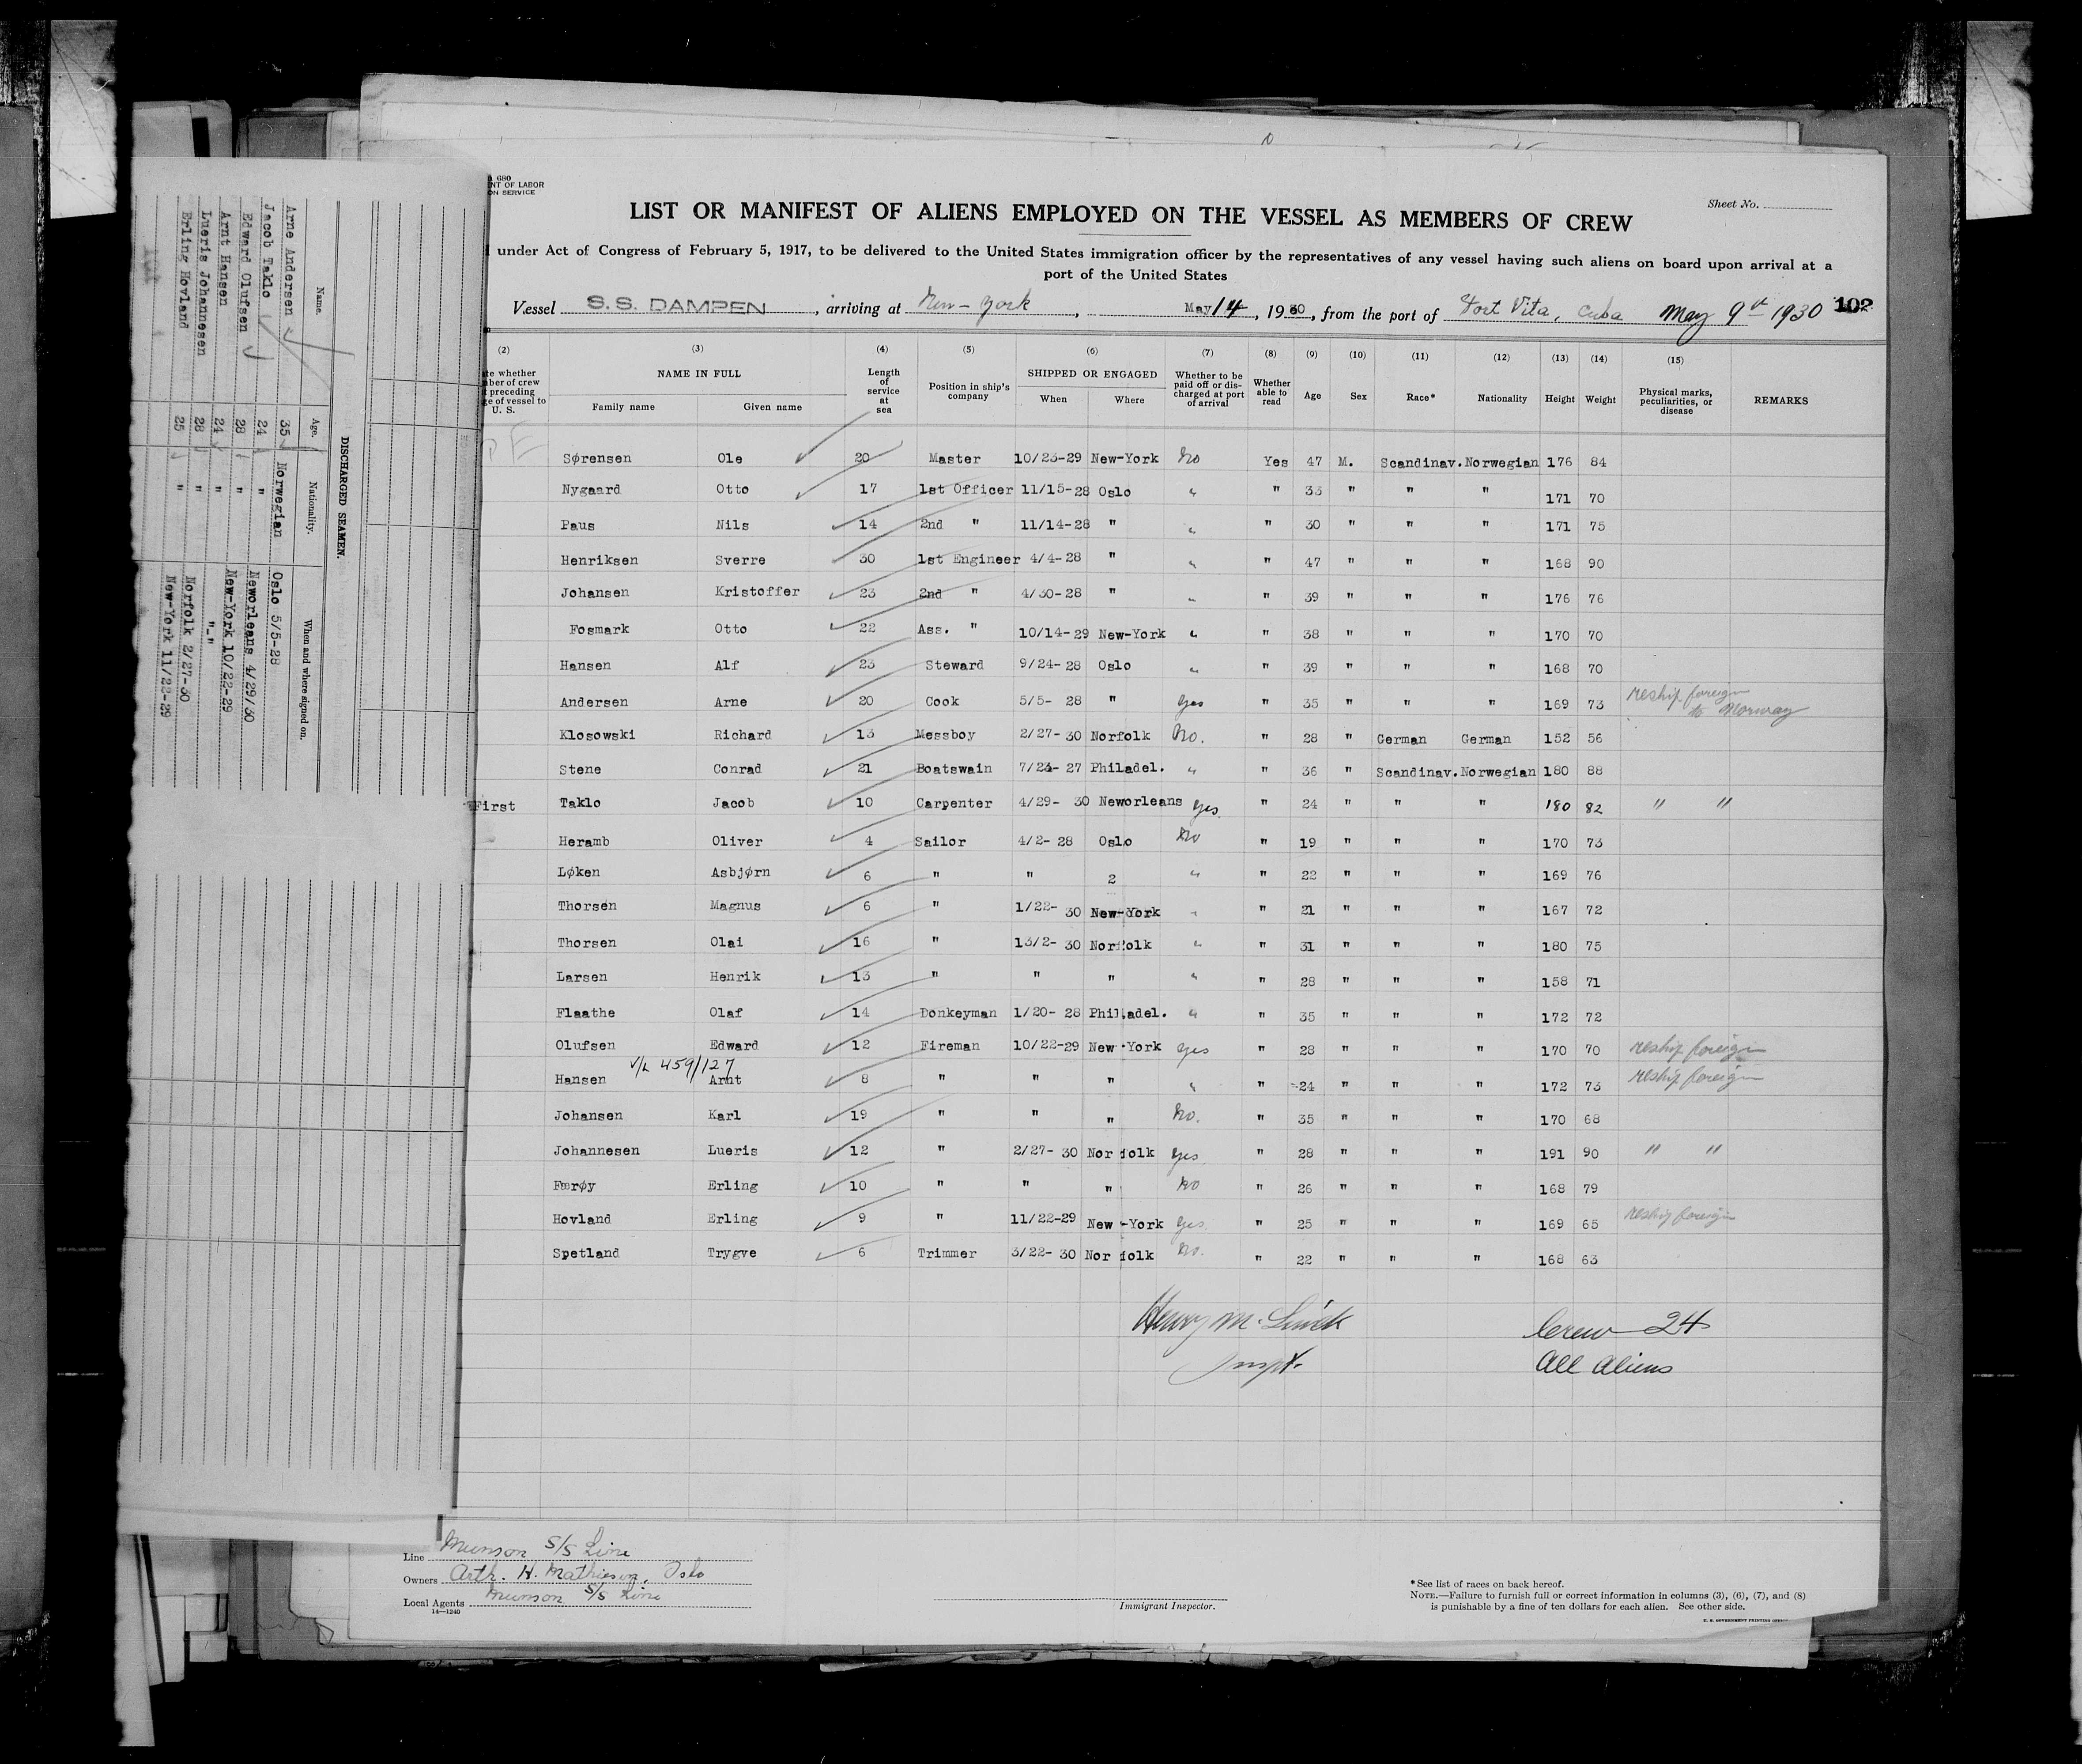 680
NT OF LABOR
ON SERVICE
Sheet No.
LIST OR MANIFEST OF ALIENS EMPLOYED ON THE VESSEL AS MEMBERS OF CREW
under Act of Congress of February 5, 1917, to be delivered to the United States immigration officer by the representatives of any vessel having such aliens on board upon arrival at a
port of the United States
Vessel S.S. DAMPEN, arriving at New-York, May 14, 1930, from the port of Port Vita, Cuba May 9th 1930 102
(2) (3) (4) (5) (6) (7) (8) (9) (10) (11) (12) (13) (14) (15)
te whether
ber of crew
t preceding
ge of vessel to
U. S.
NAME IN FULL
Family name Given name
Length
of
service
at
sea
Position in ship's
company
SHIPPED OR ENGAGED
When Where
Whether to be
paid off or dis-
charged at port
of arrival
Whether
able to
read
Age Sex Race* Nationality Height Weight
Physical marks,
peculiarities, or
disease
REMARKS
Sørensen Ole 20 Master 10/23-29 New-York No Yes 47 M. Scandinav. Norwegian 176 84
Nygaard Otto 17 1st Officer 11/15-28 Oslo " " 33 " " " 171 70
Paus Nils 14 2nd " 11/14-28 " " " 30 " " " 171 75
Henriksen Sverre 30 1st Engineer 4/4-28 " " " 47 " " " 168 90
Johansen Kristoffer 23 2nd " 4/30-28 " " " 39 " " " 176 76
Fosmark Otto 22 Ass. " 10/14-29 New-York " " 38 " " " 170 70
Hansen Alf 23 Steward 9/24-28 Oslo " " 39 " " " 168 70
Andersen Arne 20 Cook 5/5- 28 " Yes " 35 " " " 169 73 reship foreign
to Norway
Klosowski Richard 13 Messboy 2/27-30 Norfolk No. " 28 " German German 152 56
Stene Conrad 21 Boatswain 7/23-27 Philadel. " " 36 " Scandinav. Norwegian 180 88
First Taklo Jacob 10 Carpenter 4/29- 30 Neworleans Yes. " 24 " " " 180 82 " "
Heramb Oliver 4 Sailor 4/2-28 Oslo No " 19 " " " 170 73
Løken Asbjørn 6 " " 2 " " 22 " " " 169 76
Thorsen Magnus 6 " 1/22-30 New-York " " 21 " " " 167 72
Thorsen Olai 16 " 13/2-30 Norfolk " " 31 " " " 180 75
Larsen Henrik 13 " " " " " 28 " " " 158 71
Flaathe Olaf 14 Donkeyman 1/20-28 Philadel. " " 35 " " " 172 72
Olufsen Edward 12 Fireman 10/22-29 New-York Yes " 28 " " " 170 70 reship foreign
V/L 459/127
Hansen Arnt 8 " " " " " 24 " " " 172 73 reship foreign
Johansen Karl 19 " " " No. " 35 " " " 170 68
Johannesen Lueris 12 " 2/27-30 Norfolk Yes " 28 " " " 191 90 " "
Færøy Erling 10 " " " No " 26 " " " 168 79
Hovland Erling 9 " 11/22-29 New-York Yes. " 25 " " " 169 65 reship foreign
Spetland Trygve 6 Trimmer 3/22-30 Norfolk No. " 22 " " " 168 63
Crew 24
All Aliens
Henry M.
Inspt.
Line Munson S/S Line
Owners Arth. H. Mathiesen, Oslo
Local Agents Munson S/S Line
14—1240
Immigrant Inspector.
*See list of races on back hereof.
NOTE.—Failure to furnish full or correct information in columns (3), (6), (7), and (8)
is punishable by a fine of ten dollars for each alien. See other side.
U. S. GOVERNMENT PRINTING OFFICE
DISCHARGED SEAMEN.
Name. Age. Nationality. When and where signed on.
Arne Andersen 35 Norwegian Oslo 5/5-28
Jacob Taklo 24 " Neworleans 4/29/30
Edward Olufsen 28 " New-York 10/22-29
Arnt Hansen 24 " "-"
Lueris Johannesen 28 " Norfolk 2/27-30
Erling Hovland 25 " New-York 11/22-29